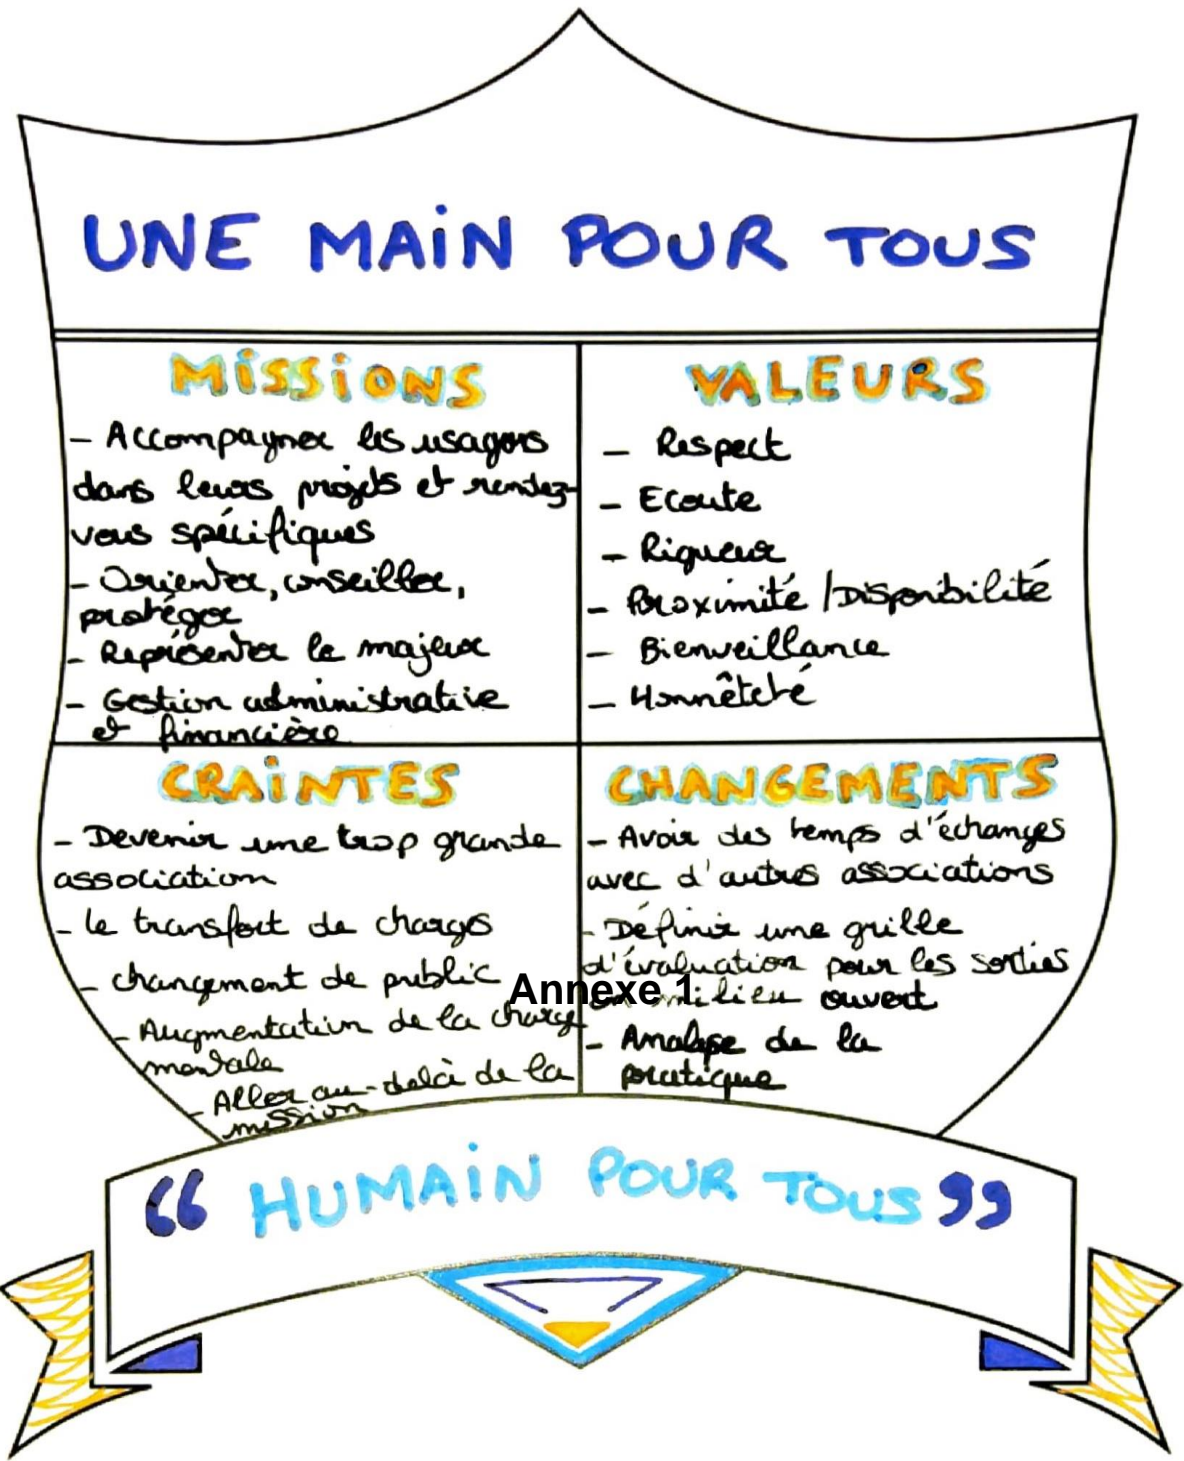 UNE MAiN POUR TOUS
MiSSiONS
- Accompagner les usagers
dans leurs projets et rendez-
vous spécifiques
- Orienter, conseiller,
protéger
- Représenter le majeur
- Gestion administrative
et financière
VALEURS
- Respect
- Ecoute
- Rigueur
- Proximité / Disponibilité
- Bienveillance
- Honnêteté
CRAiNTES
- Devenir une trop grande
association
- le transfert de charges
- changement de public
- Augmentation de la charge
mentale
- Aller au-delà de la
mission
CHANGEMENTS
- Avoir des temps d'échanges
avec d'autres associations
- Définir une grille
d'évaluation pour les sorties
en milieu ouvert
- Analyse de la
pratique
Annexe 1
“ HUMAiN POUR TOUS ”